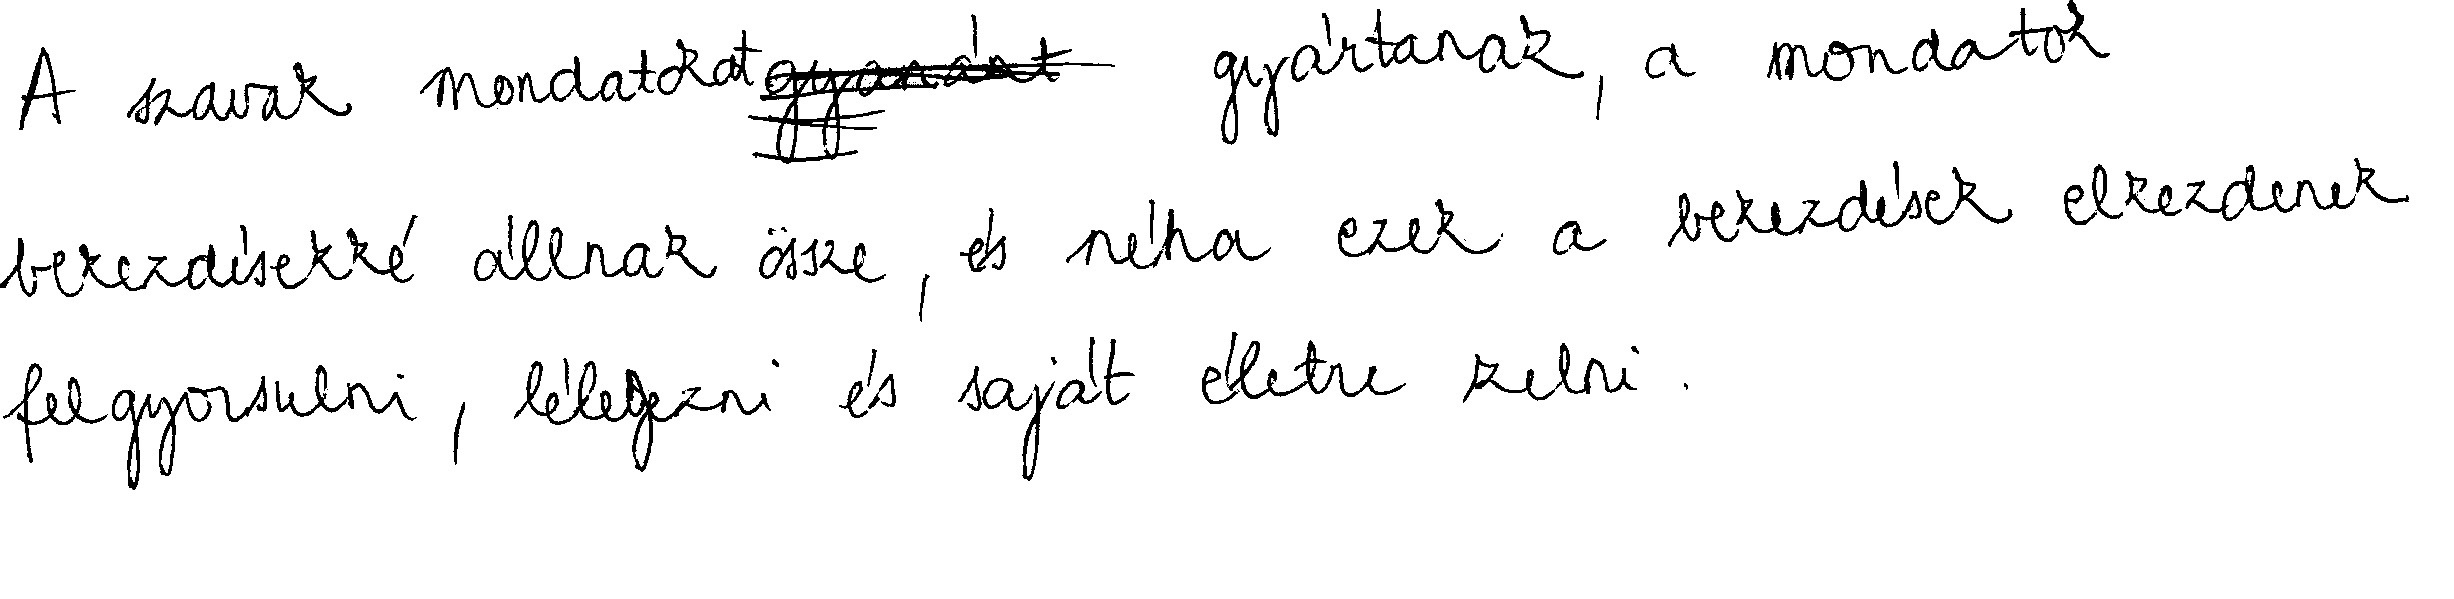 A szavak mondatokat gyártanak, a mondatok
bekezdésekké állnak össze, és néha ezek a bekezdések elkezdenek
felgyorsulni, lélegezni és saját életre kelni.